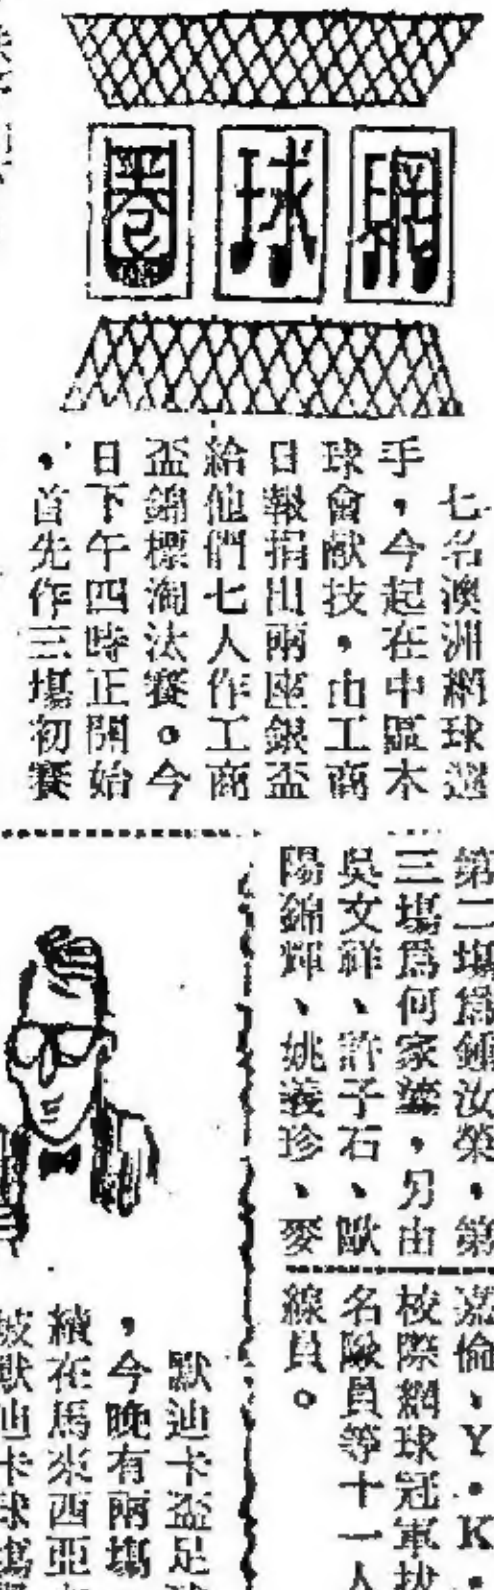 網球圈
七名澳洲網球選
手，今起在中區木
球會獻技，由工商
日報捐出兩座銀盃
給他們七人作工商
盃錦標淘汰賽。今
日下午四時正開始
，首先作三場初賽
第二場為鍾汝榮，第
三場為何家鏗，另由
吳文祥、許子石、歐
陽錦輝、姚義珍、麥
嘉倫、Y．K．
校際網球冠軍
名隊員等十一人
線員。
默迪卡盃足球
，今晚有兩塲
續在馬來西亞
默迪卡球場